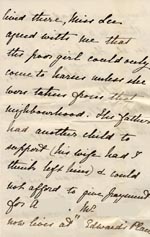 lived there, Miss Lee
agreed with me that
this poor girl could only
come to harm unless she
were taken from that
neighbourhood. The father
had another child to
support (his wife had I
think left him) & could
not afford to give payment
for A
now lives at " Edward's Place